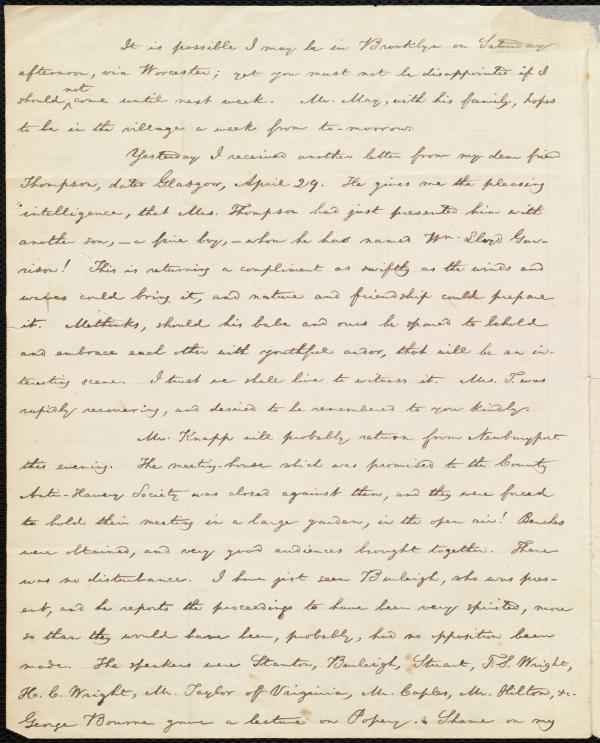 It is possible I may be in Brooklyn on Saturday
afternoon, via Worcester; yet you must not be disappointed if I
not
should ^ come until next week. Mr. May, with his family, hopes
to be in the village a week from to-morrow.
Yesterday I received another letter from my dear friend
Thompson, dated Glasgow, April 29. He gives me the pleasing
intelligence, that Mrs. Thompson had just presented him with
another son,—a fine boy,—whom he has named Wm. Lloyd Gar-
rison! This is returning a compliment as swiftly as the winds and
waves could bring it, and nature and friendship could prepare
it. Methinks, should his babe and ours be spared to behold
and embrace each other with youthful ardor, that will be an in-
teresting scene. I trust we shall live to witness it. Mrs. T. was
rapidly recovering, and desired to be remembered to you kindly.
Mr. Knapp will probably return from Newburyport
this evening. The meeting-house which was promised to the County
Anti-Slavery Society was closed against them, and they were forced
to hold their meeting in a large garden, in the open air! Benches
were obtained, and very good audiences brought together. There
was no disturbance. I have just seen Burleigh, who was pres-
ent, and he reports the proceedings to have been very spirited, more
so than they would have been, probably, had no opposition been
made. The speakers were Stanton, Burleigh, Stuart, T. S. Wright,
H. C. Wright, Mr. Taylor of Virginia, Mr. Caples, Mr. Hilton, &c.
George Bourne gave a lecture on Popery. Shame on my